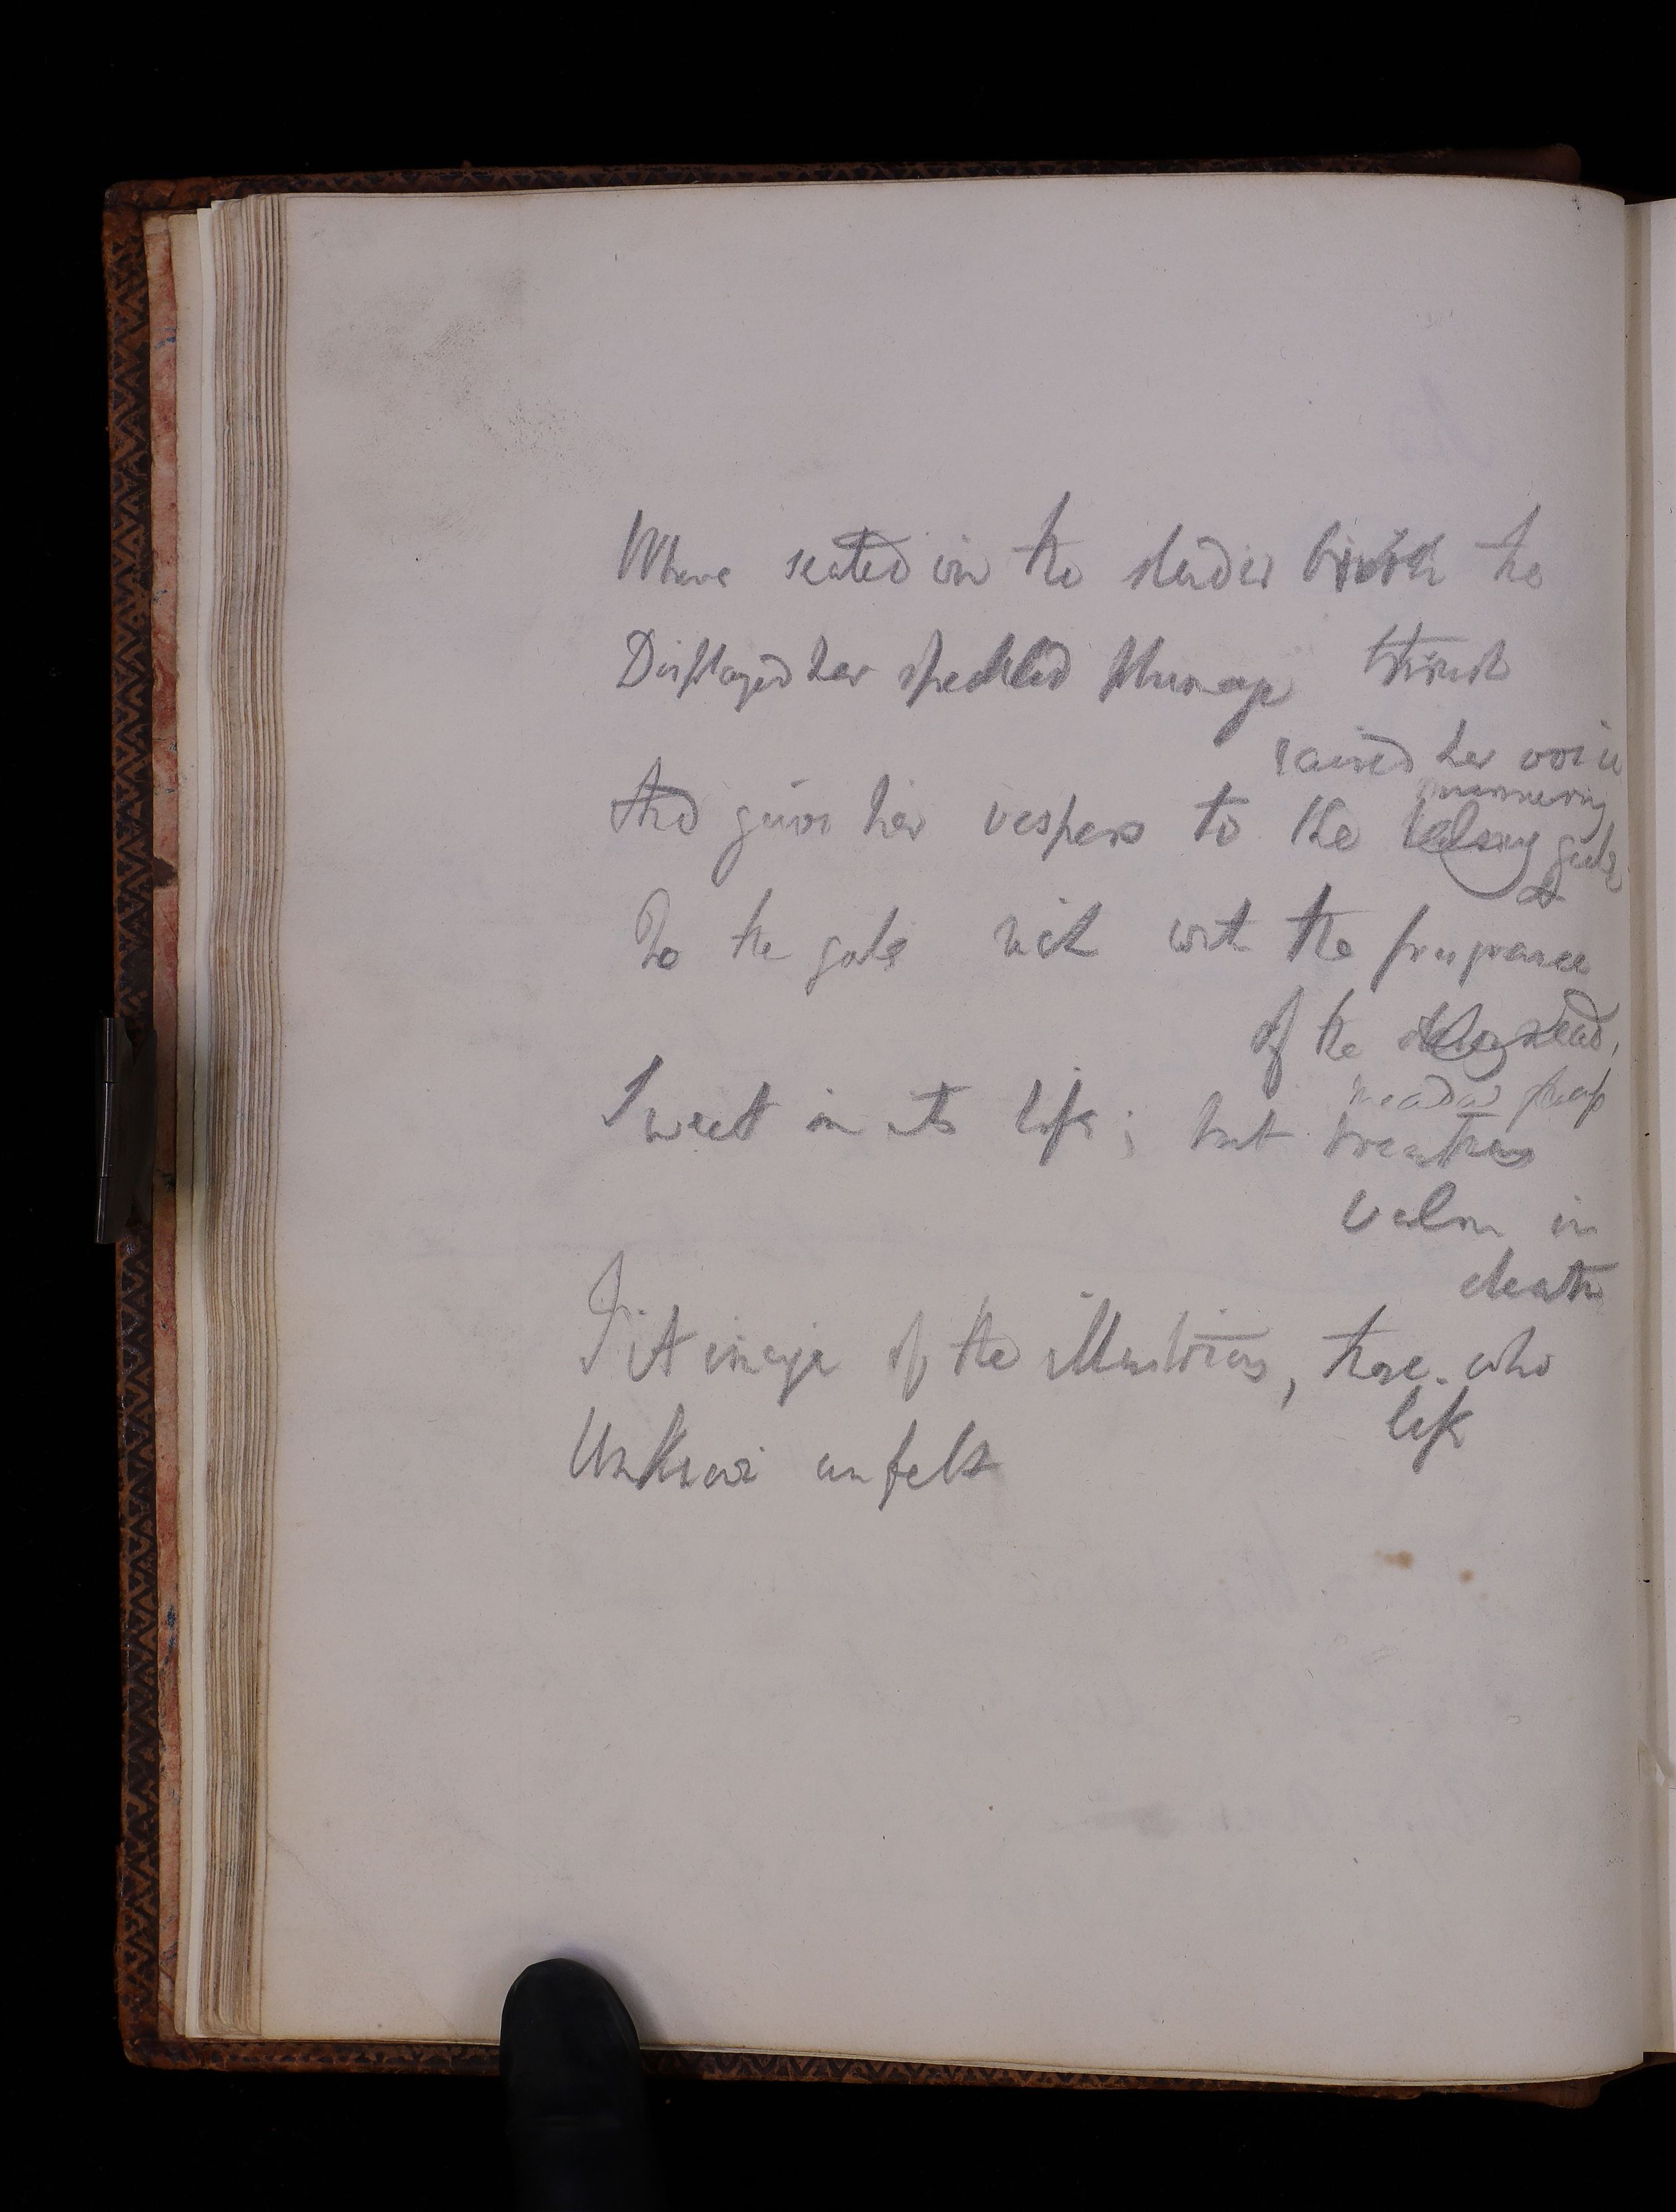 Where seated in the slender birch the
thrush
Displayed her speckled plumage
raised her voice
murmuring
And given her vespers to the balmy gale
To the gale rich with the fragrance
of the dead,
meadow
Sweet in its life; but breathes
balm in
death
Fit image of the illustrious, those who
life
Unknown unfelt